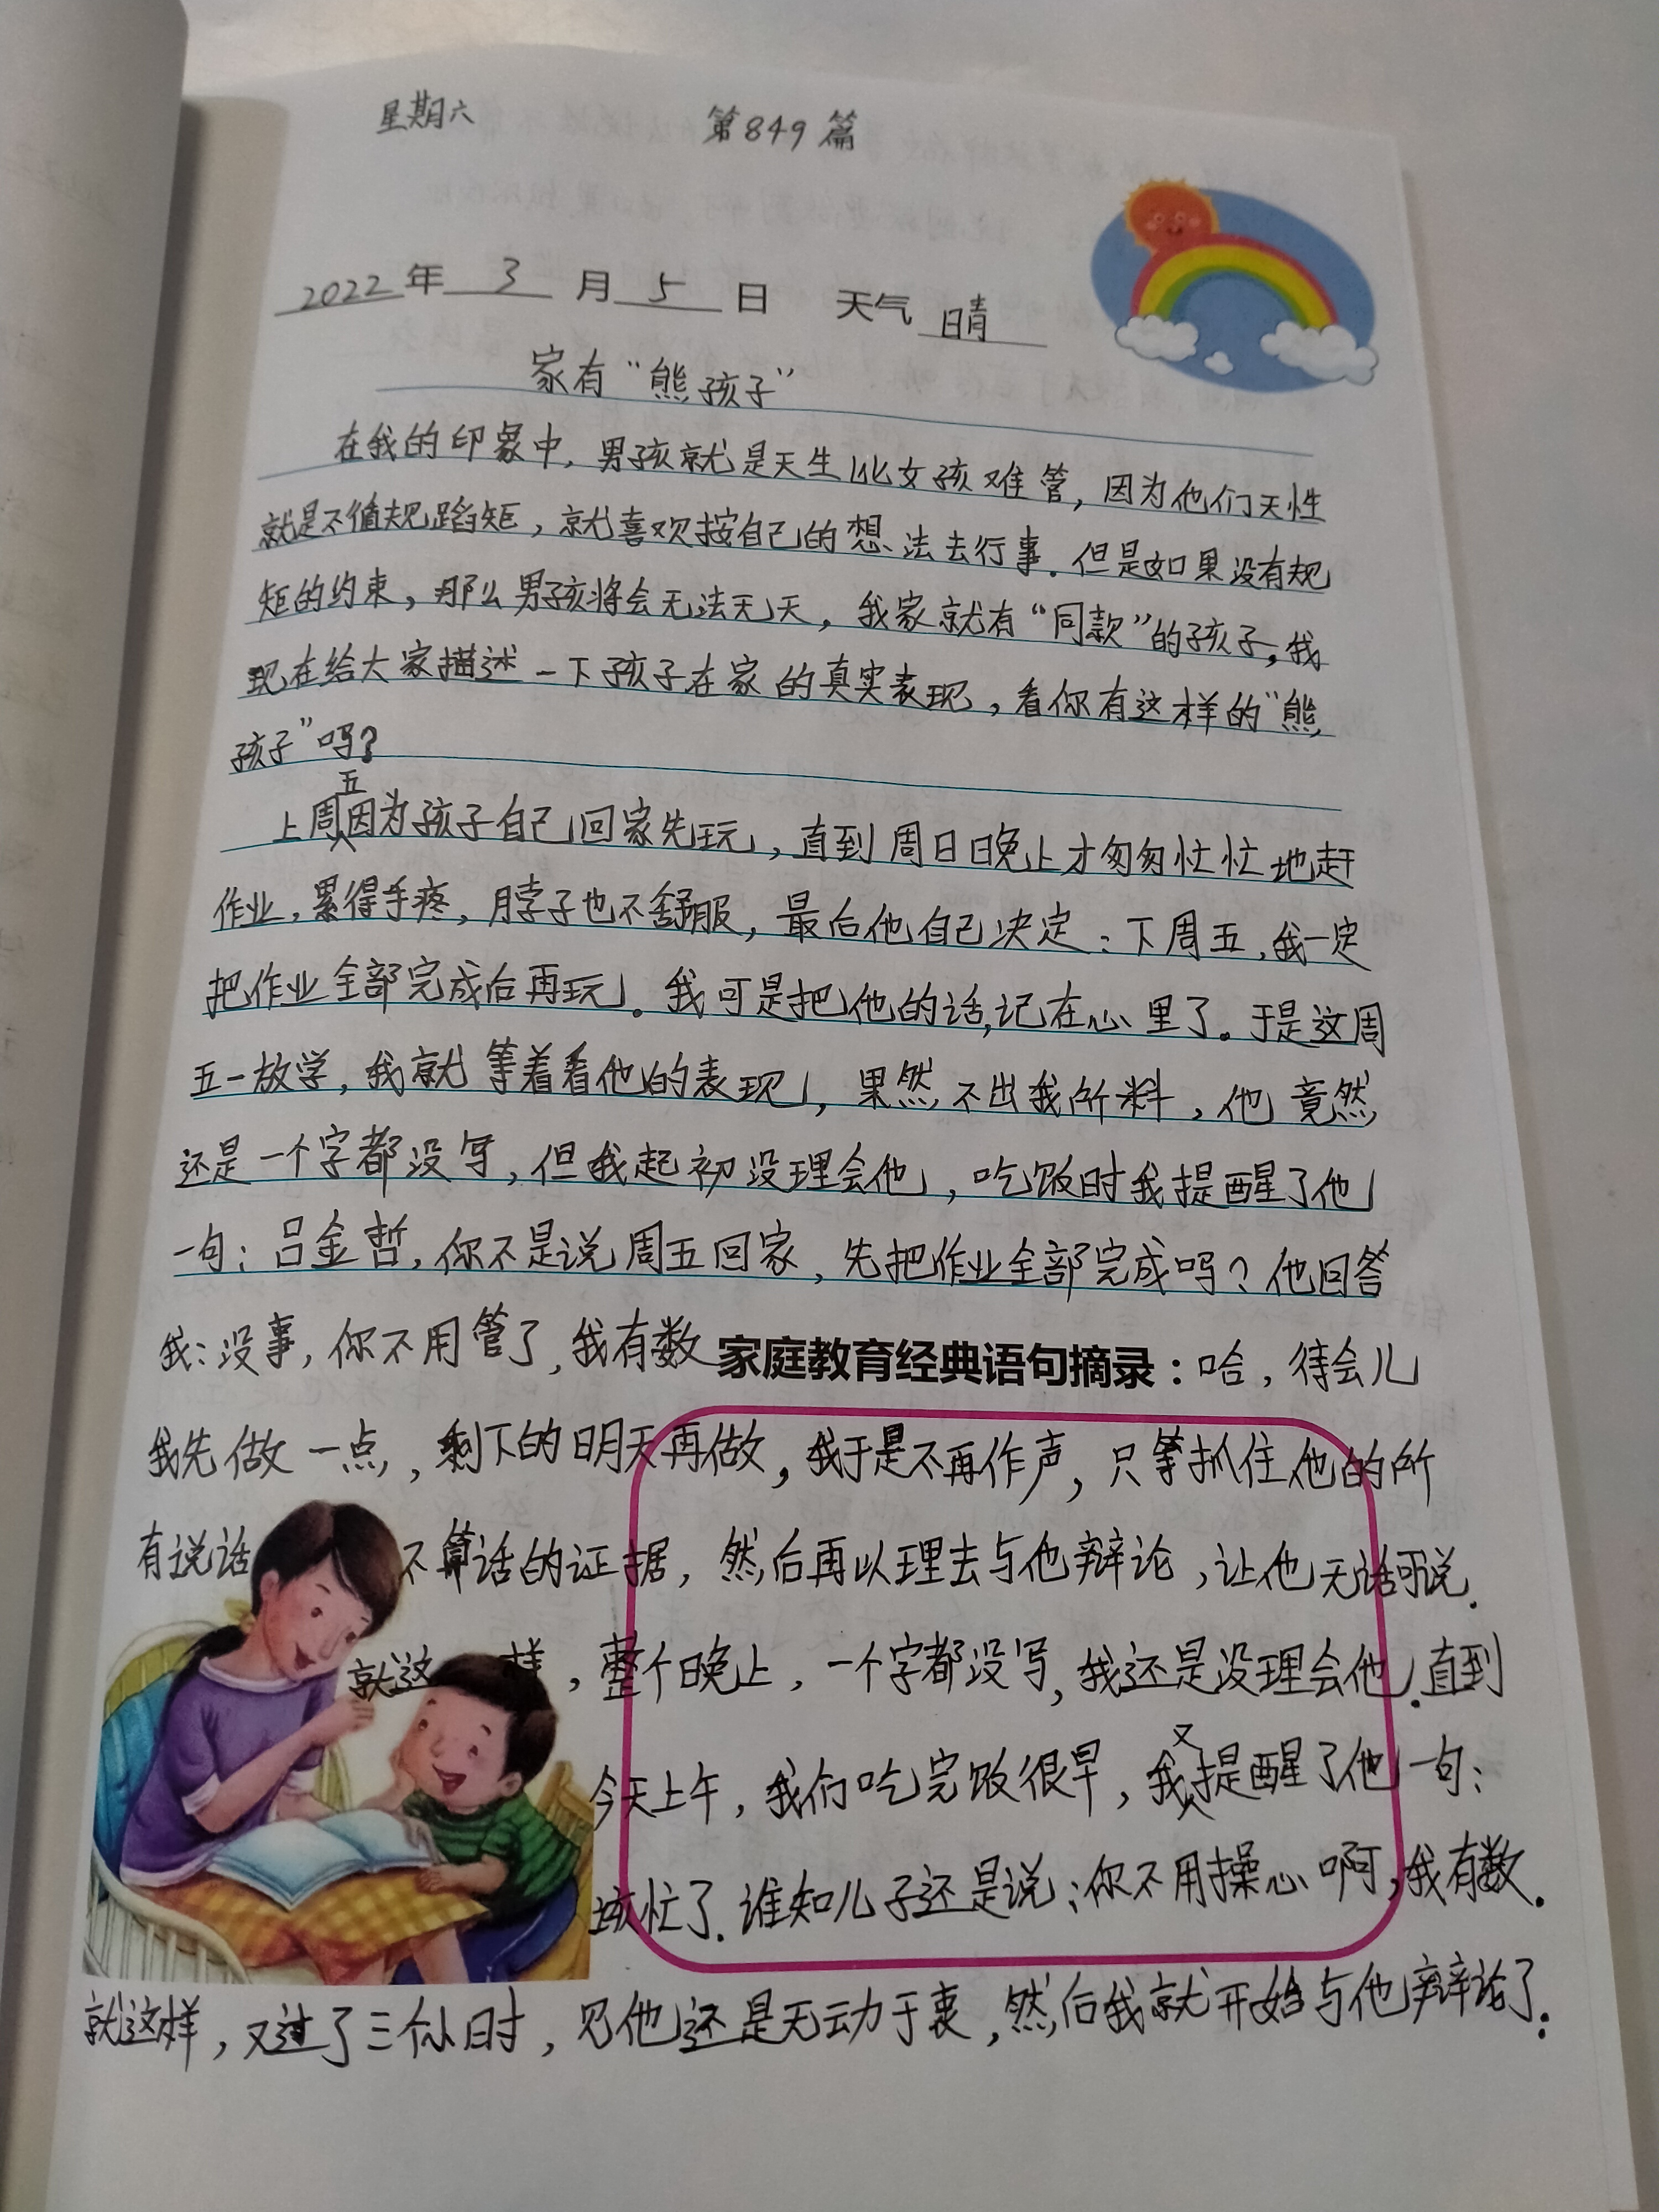 星期六 第849篇
2022年 3 月 5 日 天气 晴
家有“熊孩子”
在我的印象中，男孩就是天生比女孩难管，因为他们天性
就是不循规蹈矩，就喜欢按自己的想法去行事.但是如果没有规
矩的约束，那么男孩将会无法无天，我家就有“同款”的孩子，我
现在给大家描述一下孩子在家的真实表现，看你有这样的“熊
孩子”吗？
上周五因为孩子自己回家先玩，直到周日晚上才匆匆忙忙地赶
作业，累得手疼，脖子也不舒服，最后他自己决定：下周五，我一定
把作业全部完成后再玩。我可是把他的话，记在心里了。于是这周
五一放学，我就等着看他的表现，果然不出我所料，他竟然
还是一个字都没写，但我起初没理会他，吃饭时我提醒了他
一句：吕金哲，你不是说周五回家，先把作业全部完成吗？他回答
我：没事，你不用管了，我有数 家庭教育经典语句摘录：哈，待会儿
我先做一点，剩下的明天再做，我于是不再作声，只等抓住他的所
有说话不算话的证据，然后再以理去与他辩论，让他无话可说.
就这样，整个晚上，一个字都没写，我还是没理会他.直到
今天上午，我们吃完饭很早，我又提醒了他一句：
该忙了.谁知儿子还是说：你不用操心啊，我有数.
就这样，又过了三个小时，见他还是无动于衷，然后我就开始与他辩论了：